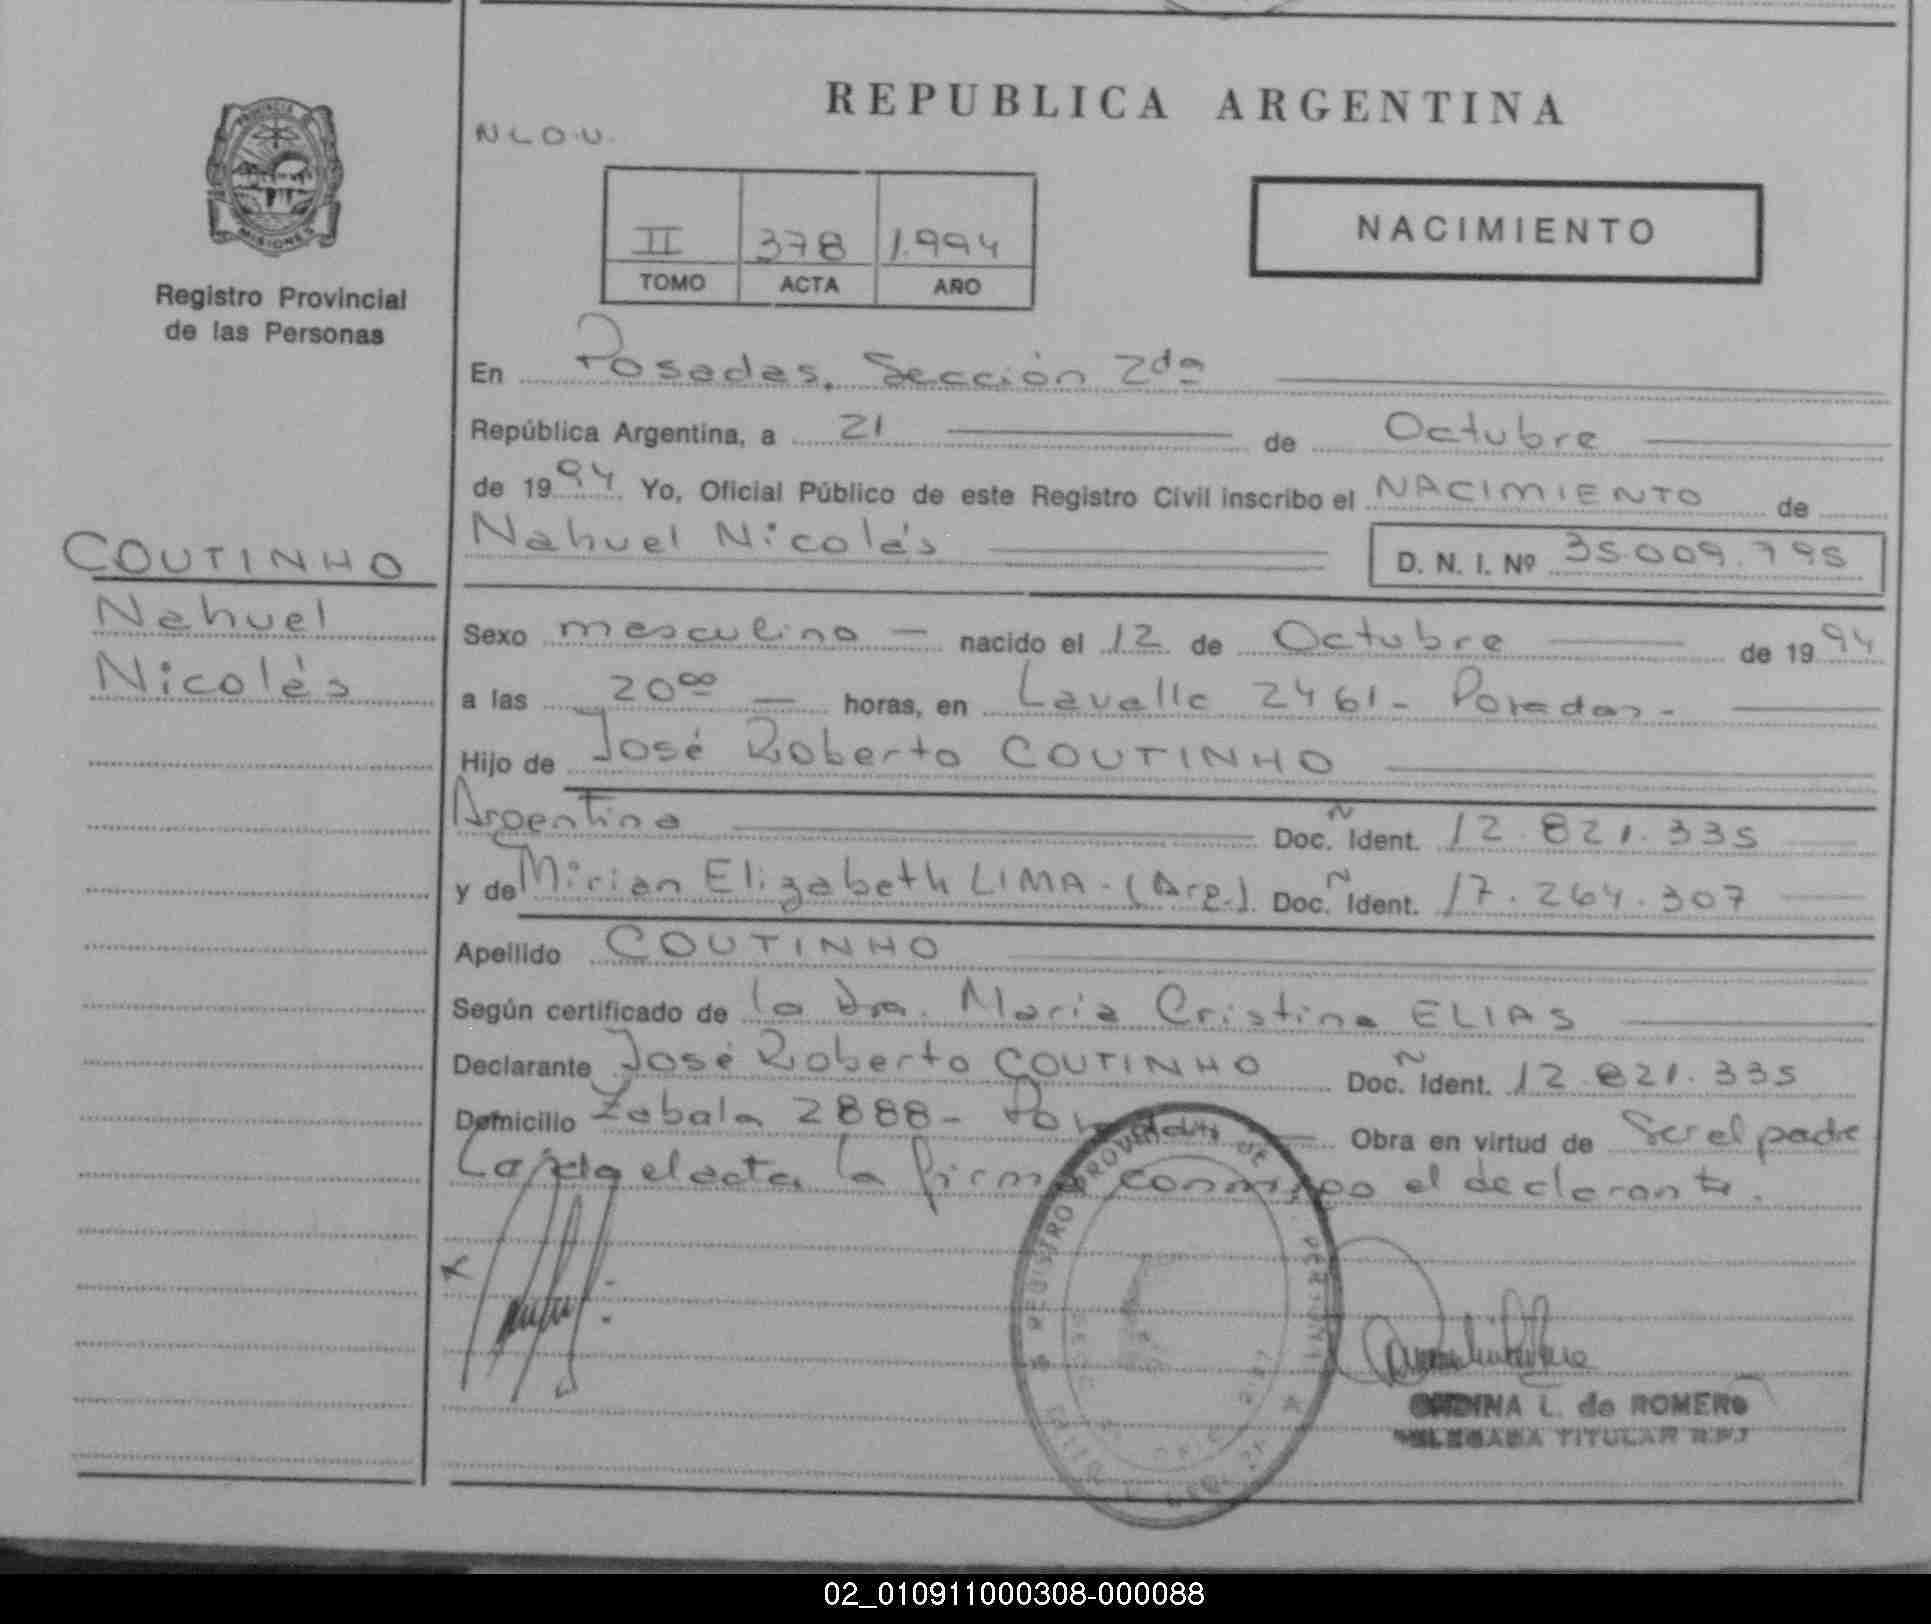 REPUBLICA ARGENTINA
N L O. U.
PROVINCIA
MISIONES
Registro Provincial
de las Personas
II 378 1.994
TOMO ACTA AÑO
NACIMIENTO
En Posadas, Sección 2da
República Argentina, a 21 de Octubre
de 1994 Yo, Oficial Público de este Registro Civil inscribo el NACIMIENTO de
Nahuel Nicolás D. N. I. Nº 35.009.795
COUTINHO
Nahuel
Nicolás
Sexo masculino — nacido el 12 de Octubre de 1994
a las 20⁰⁰ — horas, en Lavalle 2461 - Posadas -
Hijo de José Roberto COUTINHO
Argentina Doc. Ñ Ident. 12.821.335
y de Mirian Elizabeth LIMA - (Arg.). Doc. Ñ Ident. 17.264.307
Apellido COUTINHO
Según certificado de la Dra. María Cristina ELIAS
Declarante José Roberto COUTINHO Doc. Ñ Ident. 12.821.335
Domicilio Zabala 2888 - Posadas Obra en virtud de Ser el padre
Leída el acta, la firma conmigo el declarante.
REGISTRO PROVINCIAL DE
L. de ROMERO
TITULAR
02_010911000308-000088